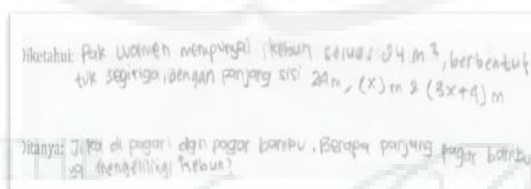 Diketahui: Pak wowen mempunyai kebun seluas 84 m², berbentuk
tuk segitiga, dengan panjang sisi 24m, (x) m & (3x+4) m
Ditanya: Jika di pagari dgn pagar bambu, Berapa panjang pagar bambu
yg mengelilingi kebun?